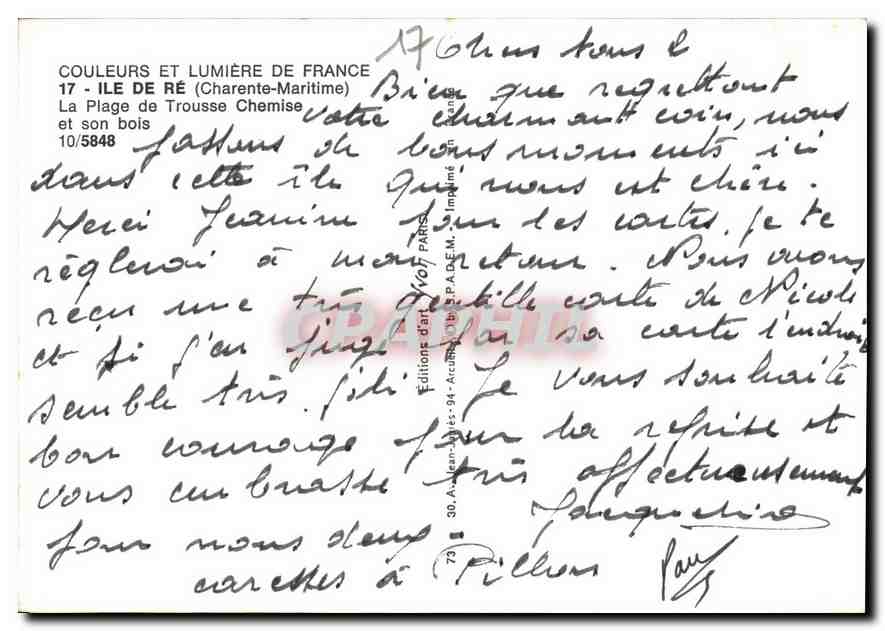 17 Chers tous 2
COULEURS ET LUMIÈRE DE FRANCE
17 - ILE DE RÉ (Charente-Maritime)
La Plage de Trousse Chemise
et son bois
10/5848
Bien que regrettant
votre charmant coin, nous
passons de bons moments ici
dans cette île qui nous est chère.
Merci Jeanine pour les cartes, je te
règlerai à mon retour. Nous avons
reçu une très gentille carte de Nicole
et si j'en juge par sa carte l'endroit
semble très joli. Je vous souhaite
bon courage pour la reprise et
vous embrasse très affectueusement
pour nous deux Jacqueline
caresses à Pilhou Paul
Editions d'art YVON PARIS
30, Av. Jean-Jaurès - 94 - Arcueil by S.P.A.D.E.M. Imprimé en France
73
CPAPHIL